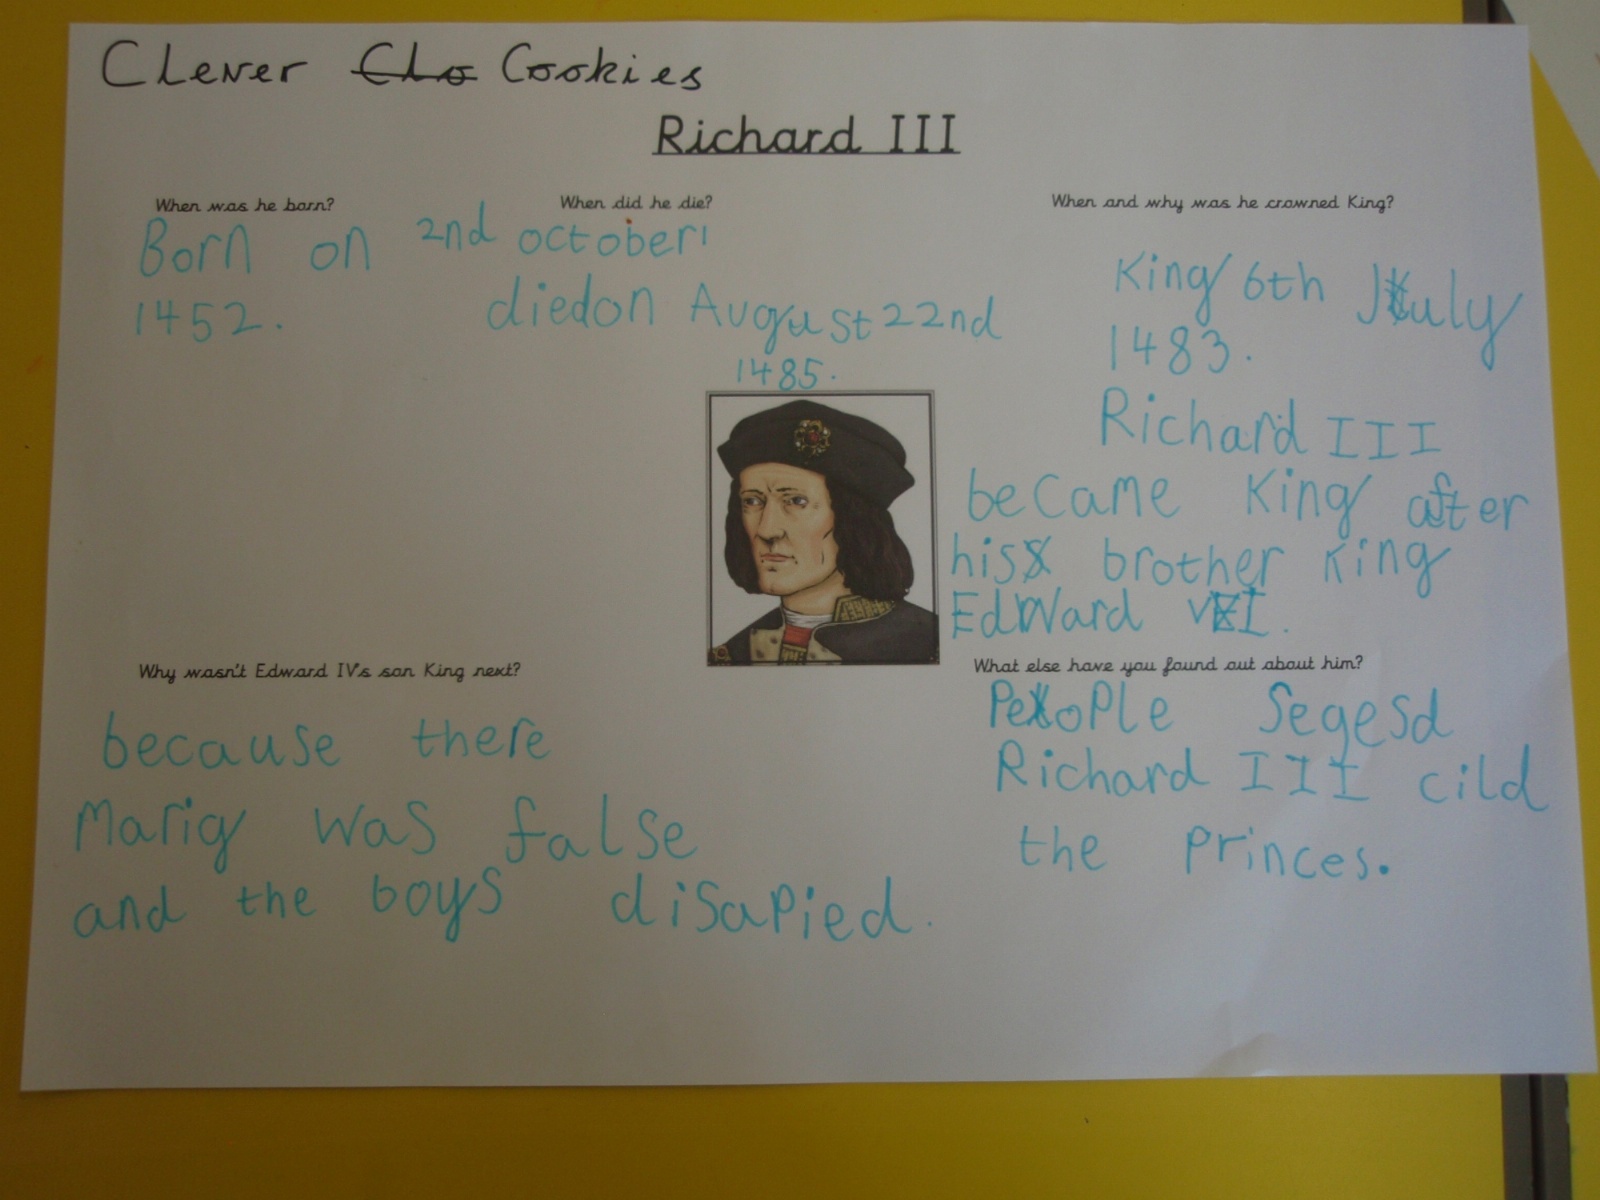 Clever Clo Cookies
Richard III
When was he born?
Born on 2nd october
1452.
When did he die?
diedon August 22nd
1485.
When and why was he crowned King?
King 6th July
1483.
Richard III
became King after
his brother King
Edward
Why wasn't Edward IV's son King next?
because there
Marig was false
and the boys disapied.
What else have you found out about him?
People Segesd
Richard III cild
the Princes.